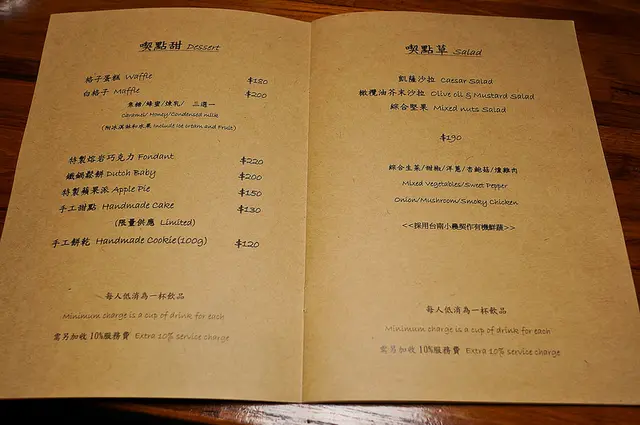 喫點甜 Dessert
格子蛋糕 Waffle $180
白格子 Maffle $200
焦糖/蜂蜜/煉乳/ 三選一
Caramel/Honey/Condensed milk
(附冰淇淋和水果 Include Ice cream and Fruit)
特製熔岩巧克力 Fondant $220
鐵鍋鬆餅 Dutch Baby $200
特製蘋果派 Apple Pie $150
手工甜點 Handmade Cake $130
(限量供應 Limited)
手工餅乾 Handmade Cookie(100g) $120
每人低消為一杯飲品
Minimum charge is a cup of drink for each
需另加收 10%服務費 Extra 10% service charge
喫點草 Salad
凱薩沙拉 Caesar Salad
橄欖油芥末沙拉 Olive oil & Mustard Salad
綜合堅果 Mixed nuts Salad
$190
綜合生菜/甜椒/洋蔥/杏鮑菇/燻雞肉
Mixed Vegetables/Sweet Pepper
Onion/Mushroom/Smoky Chicken
<<採用台南小農契作有機鮮蔬>>
每人低消為一杯飲品
Minimum charge is a cup of drink for each
需另加收 10%服務費 Extra 10% service charge